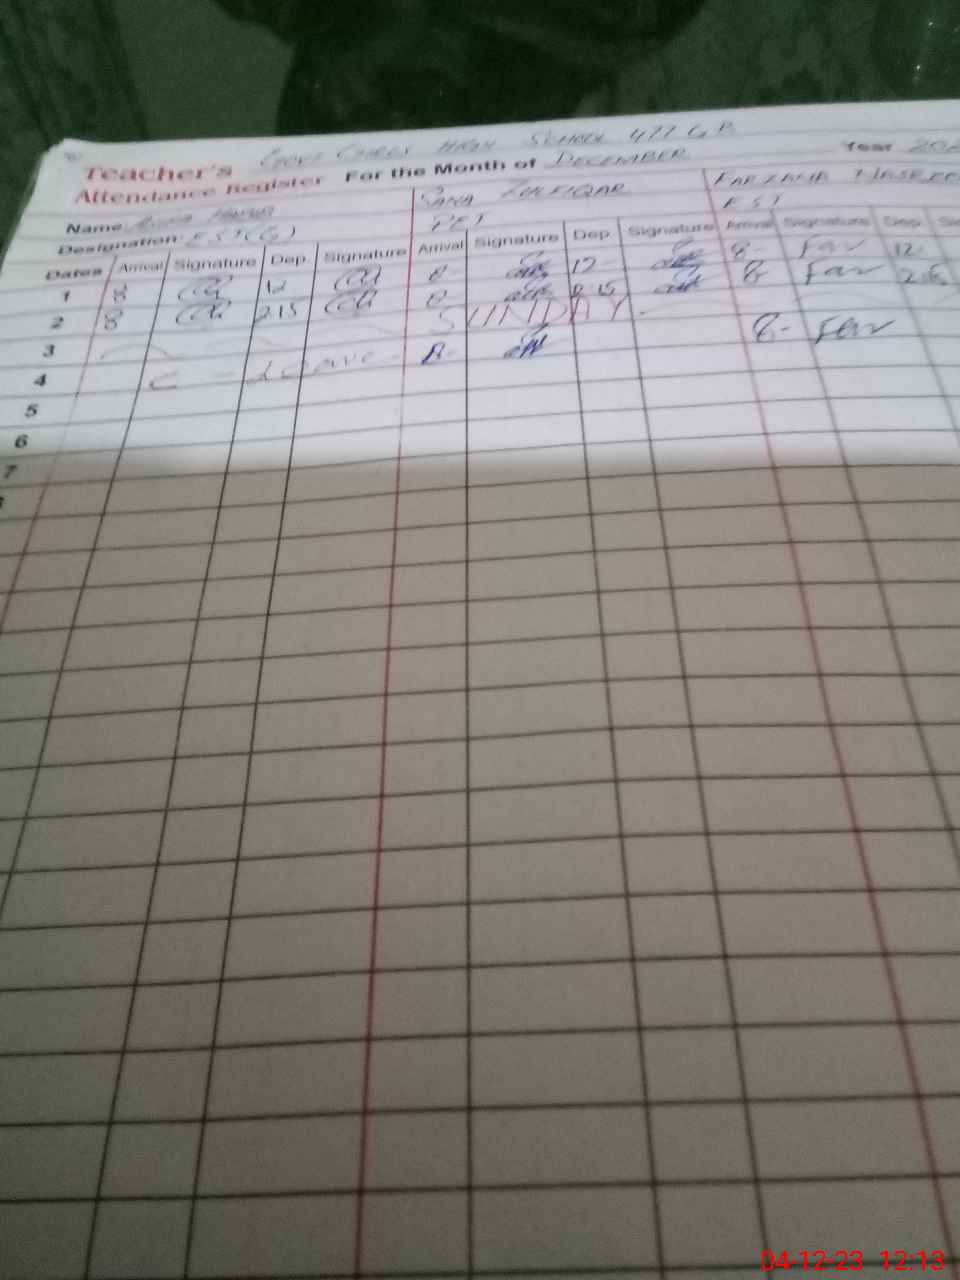 Teacher's GOVT GIRLS HIGH SCHOOL 477 GB
Attendance Register For the Month of DECEMBER Year
Name SANA ZULFIQAR FARZANA
Designation EST(G) PET EST
Dates Arrival Signature Dep. Signature Arrival Signature Dep. Signature Arrival Signature Dep.
1 8 12 8 12 8- Far 12-
2 8 2.15 8 2.15 8- Far 2.15
3 SUNDAY
4 C-Leave 8- 8- Far
5
6
7
04-12-23 12:13